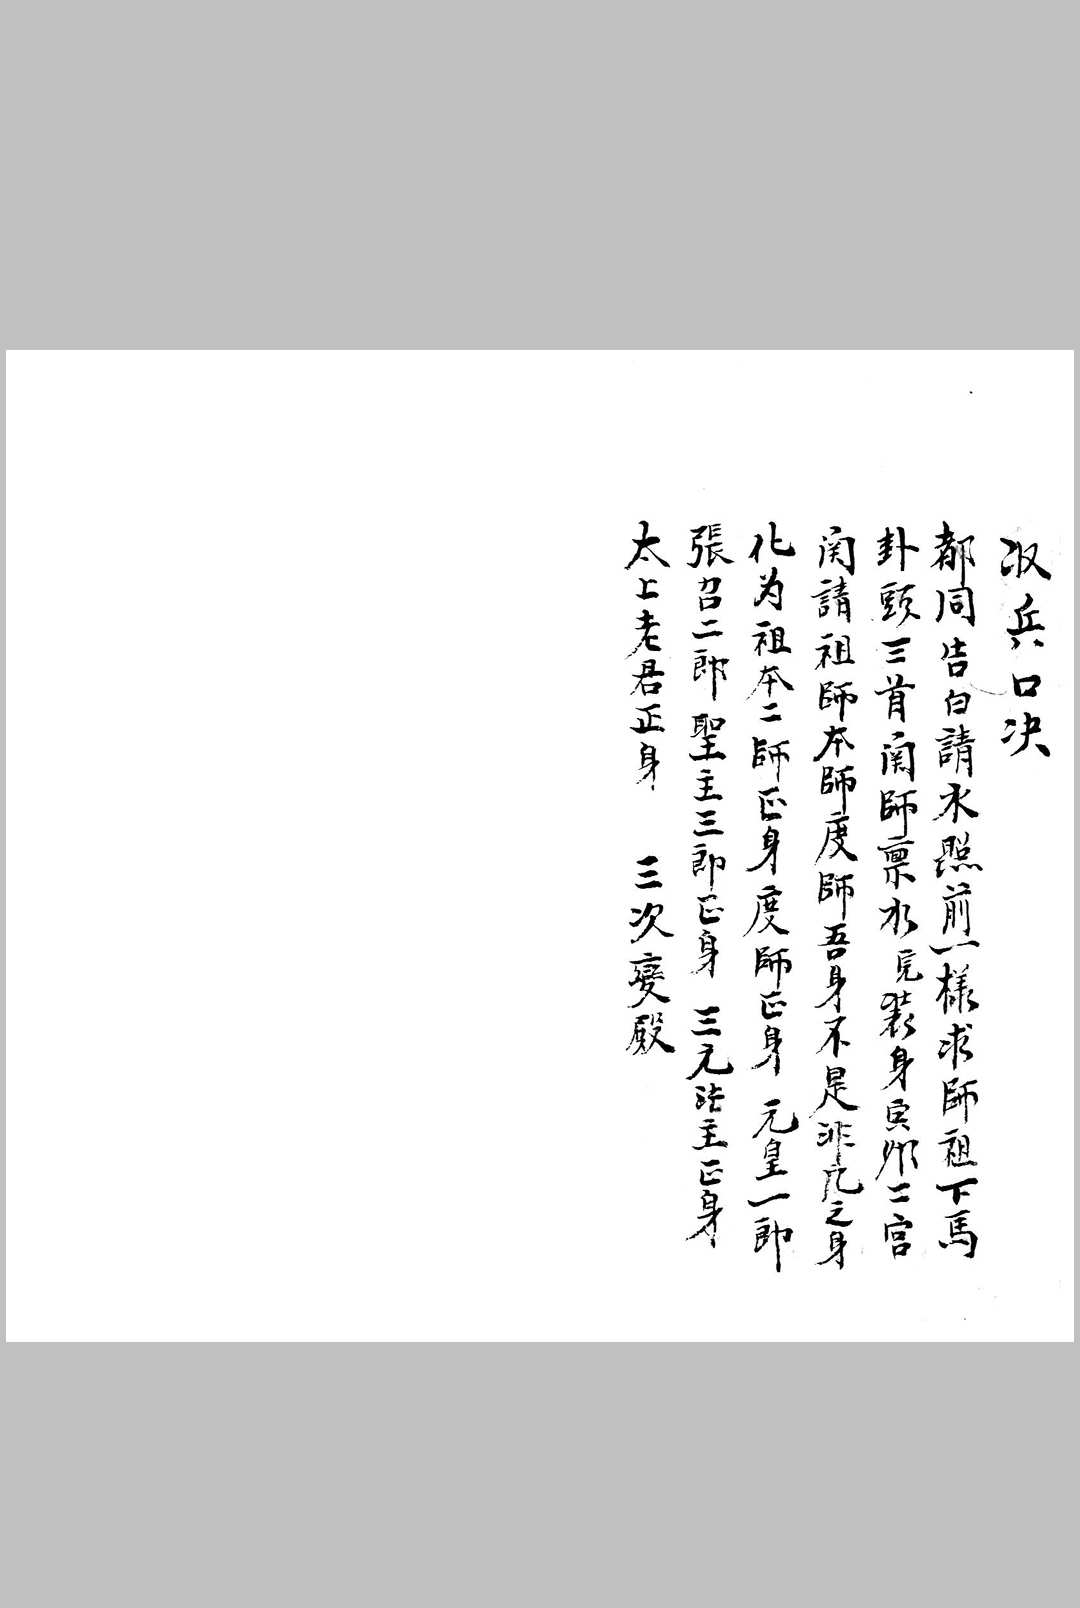 收兵口决
都同告白請水照前一樣求師祖下馬
卦頭三首閗師禀水完裝身寅卯二宫
閗請祖師本師度師吾身不是非凡之身
化为祖本二師正身度師正身 元皇一郎
張召二郎聖主三郎正身 三元法主正身
太上老君正身 三次變殿